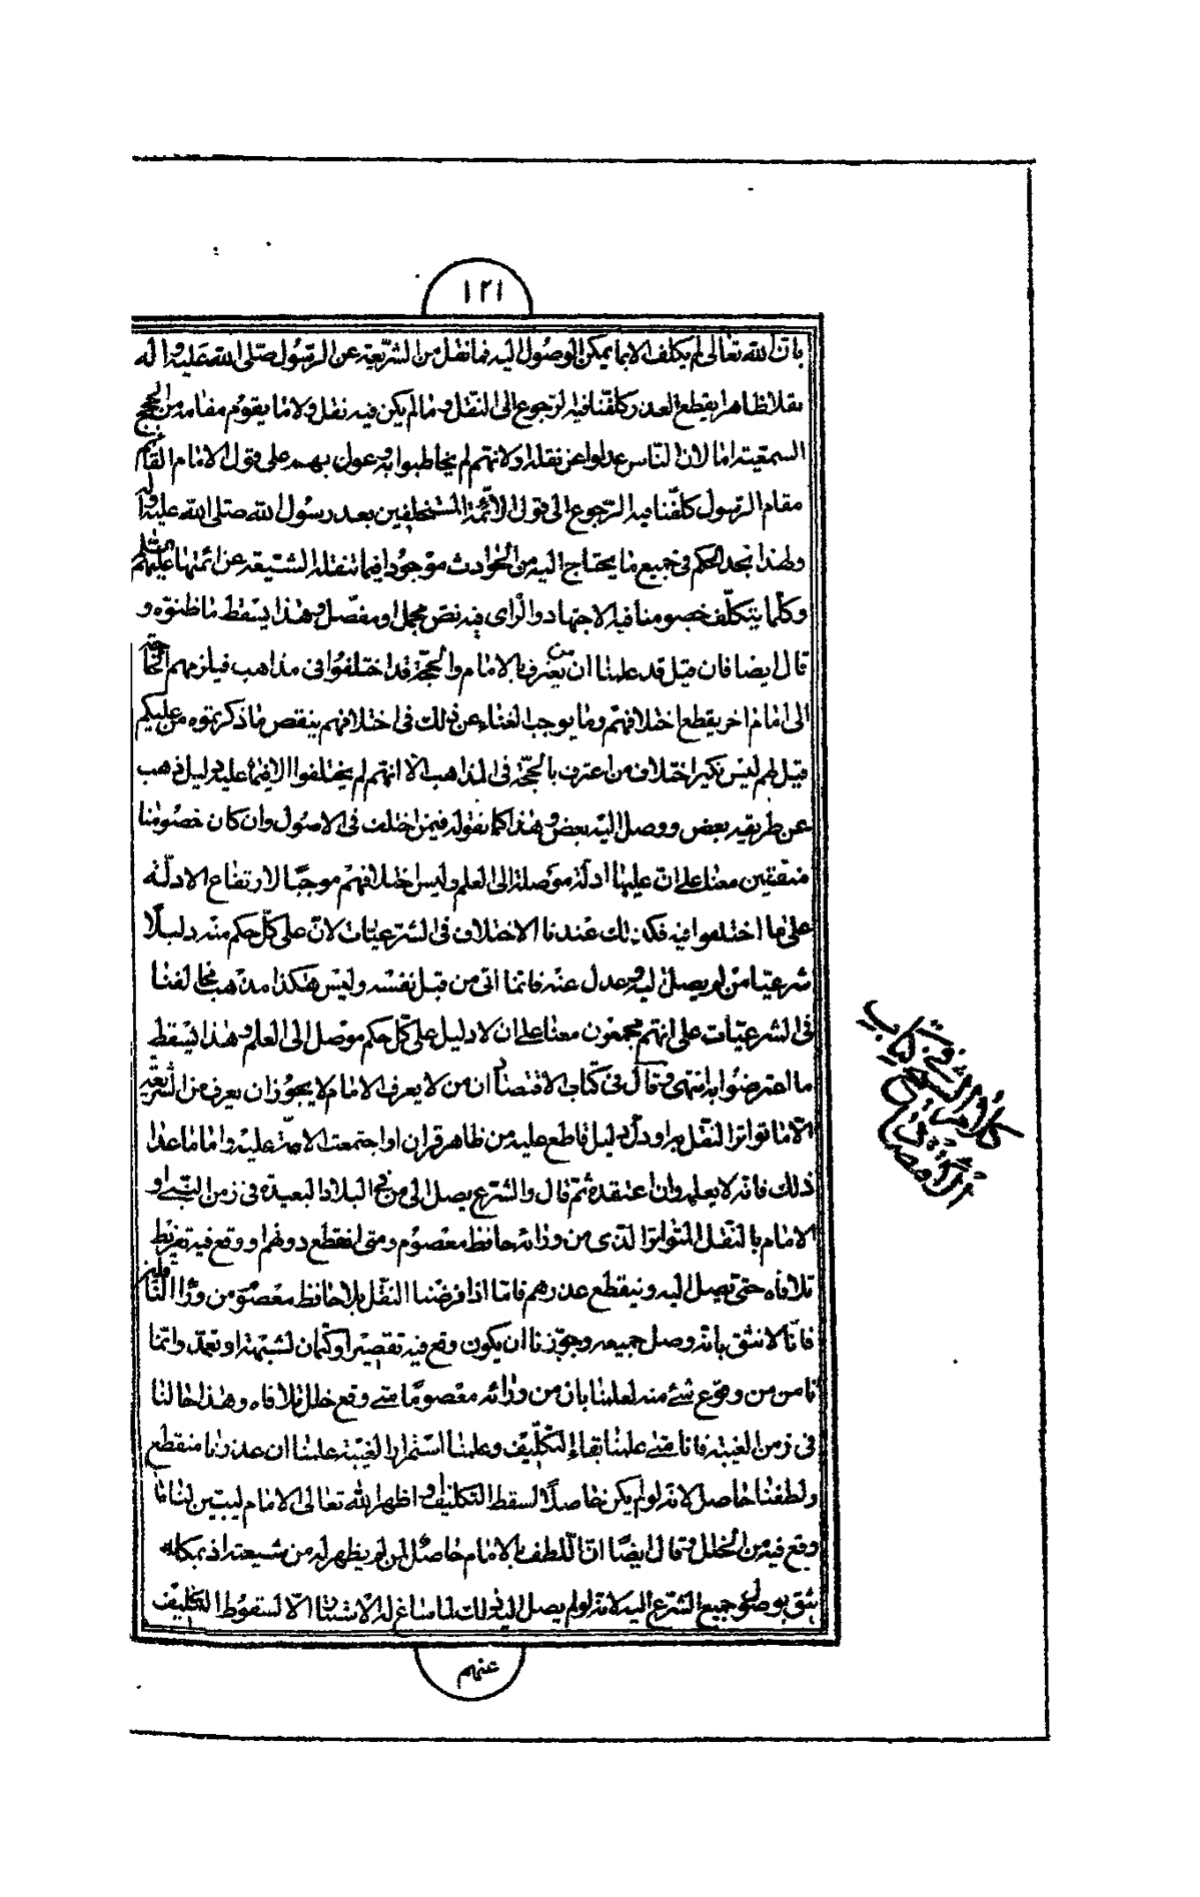 ١٢١
بان الله تعالى لم يكلف الا بما يمكن الوصول اليه فما نقل من الشريعة عن الرسول صلى الله عليه واله
نقلا ظاهرا يقطع العذر كلفنا فيه الرجوع الى النقل وما لم يكن فيه نقل ولا ما يقوم مقامه من الحجج
السمعية اما لان الناس عدلوا عن نقله او لانهم لم يخاطبوا به وعول بهم على قول الامام القائم
مقام الرسول كلفنا فيه الرجوع الى قول الائمة المستخلفين بعد رسول الله صلى الله عليه واله
ولهذا نجد الحكم في جميع ما يحتاج اليه من الحوادث موجودا فيما تنقله الشيعة عن ائمتها عليهم السلم
وكلما يتكلف خصومنا فيه الاجتهاد والراى فيه نص مجمل او مفصل وهذا يسقط ما ظنوه و
قال ايضا فان قيل قد علمنا ان من يعترف بالامام والحجة قد اختلفوا فى مذاهب فيلزمهم الحاجة
الى امام اخر يقطع اختلافهم وما يوجب الغناء عن ذلك فى اختلافهم ينقص ما ذكرتموه من عليكم
قيل لهم ليس نكير اختلاف من اعترف بالحجة فى المذاهب الا انهم لم يختلفوا الا فيما عليه دليل ذهب
عن طريقه بعض ووصل اليه بعض وهذا كما نقوله فيمن اختلف فى الاصول وان كان خصومنا
متفقين معنا على ان عليها ادلة موصلة الى العلم وليس اختلافهم موجبا لارتفاع الادلة
على ما اختلفوا فيه فكذلك عندنا الاختلاف فى الشرعيات لان على كل حكم منه دليلا
شرعيا من لم يصل اليه وعدل عنه فانما اتى من قبل نفسه وليس هكذا مذهب مخالفنا
فى الشرعيات على انهم مجمعون معنا على ان لا دليل على كل حكم موصل الى العلم وهذا يسقط
ما اعترضوا به انتهى وقال فى كتاب الاقتصاد ان من لا يعرف الامام لا يجوز ان يعرف من الشريعة
الا ما تواتر النقل به او دل دليل قاطع عليه من ظاهر قران او اجتمعت الامة عليه واما ما عدا
ذلك فانه لا يعلمه وان اعتقده ثم قال والشرع يصل الى من فى البلاد البعيدة فى زمن النبى او
الامام بالنقل المتواتر الذى من ورائه حافظ معصوم ومتى انقطع دونهم او وقع فيه تفريط
تلافاه حتى يصل اليه وينقطع عذرهم فاما اذا فرضنا النقل بلا حافظ معصوم من وراء الناقلين
فانا لا نثق بانه وصل جميعه وجوزنا ان يكون وقع فيه تقصير او كتمان لشبهة او تعمد وانما
نامن من وقوع شئ منه لعلمنا بان من ورائه معصوما متى وقع خلل تلافاه وهذا حالنا
فى زمن الغيبة فانا متى علمنا بقاء التكليف وعلمنا استمرار الغيبة علمنا ان عذرنا منقطع
ولطفنا حاصل لانه لو لم يكن حاصلا لسقط التكليف او اظهر الله تعالى الامام ليبين لنا ما
وقع فيه من الخلل وقال ايضا ان اللطف بالامام حاصل لمن لم يظهر له من شيعته اذ بمكانه
يثق بوصول جميع الشرع اليه لانه لو لم يصل اليه ذلك لما ساغ له الاستتار الا لسقوط التكليف
عنهم
كلام الشيخ فى كتاب
الاقتصاد